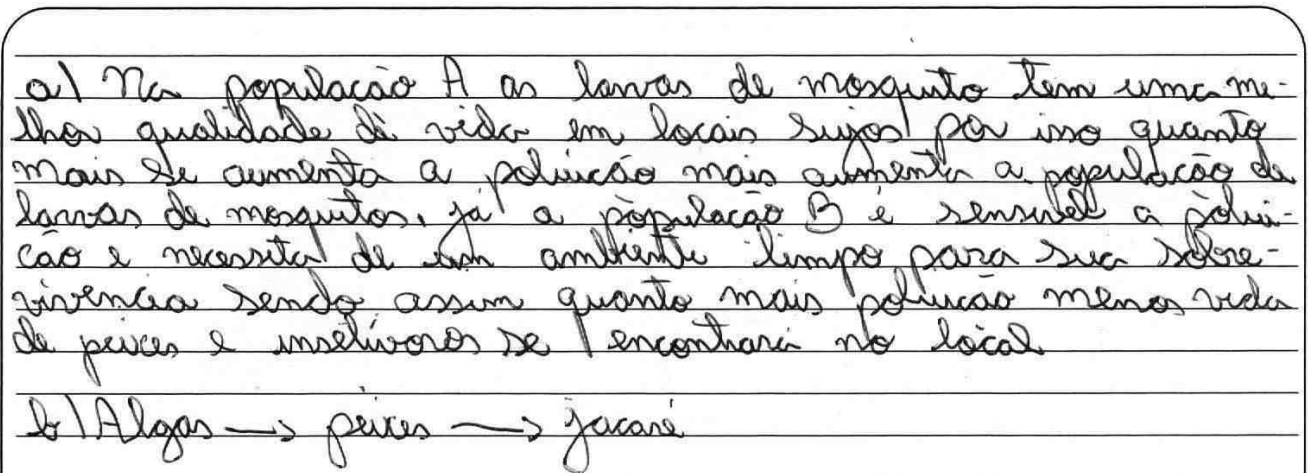 a) Na população A as larvas de mosquito tem uma me-
lhor qualidade de vida em locais sujos por isso quanto
mais se aumenta a poluição mais aumenta a população de
larvas de mosquitos, já a população B é sensivel a polui-
cão e necessita de um ambiente limpo para sua sobre-
vivencia sendo assim quanto mais poluicao menos vida
de peixes e insetivoros se encontrará no local
b) Algas → peixes → jacaré